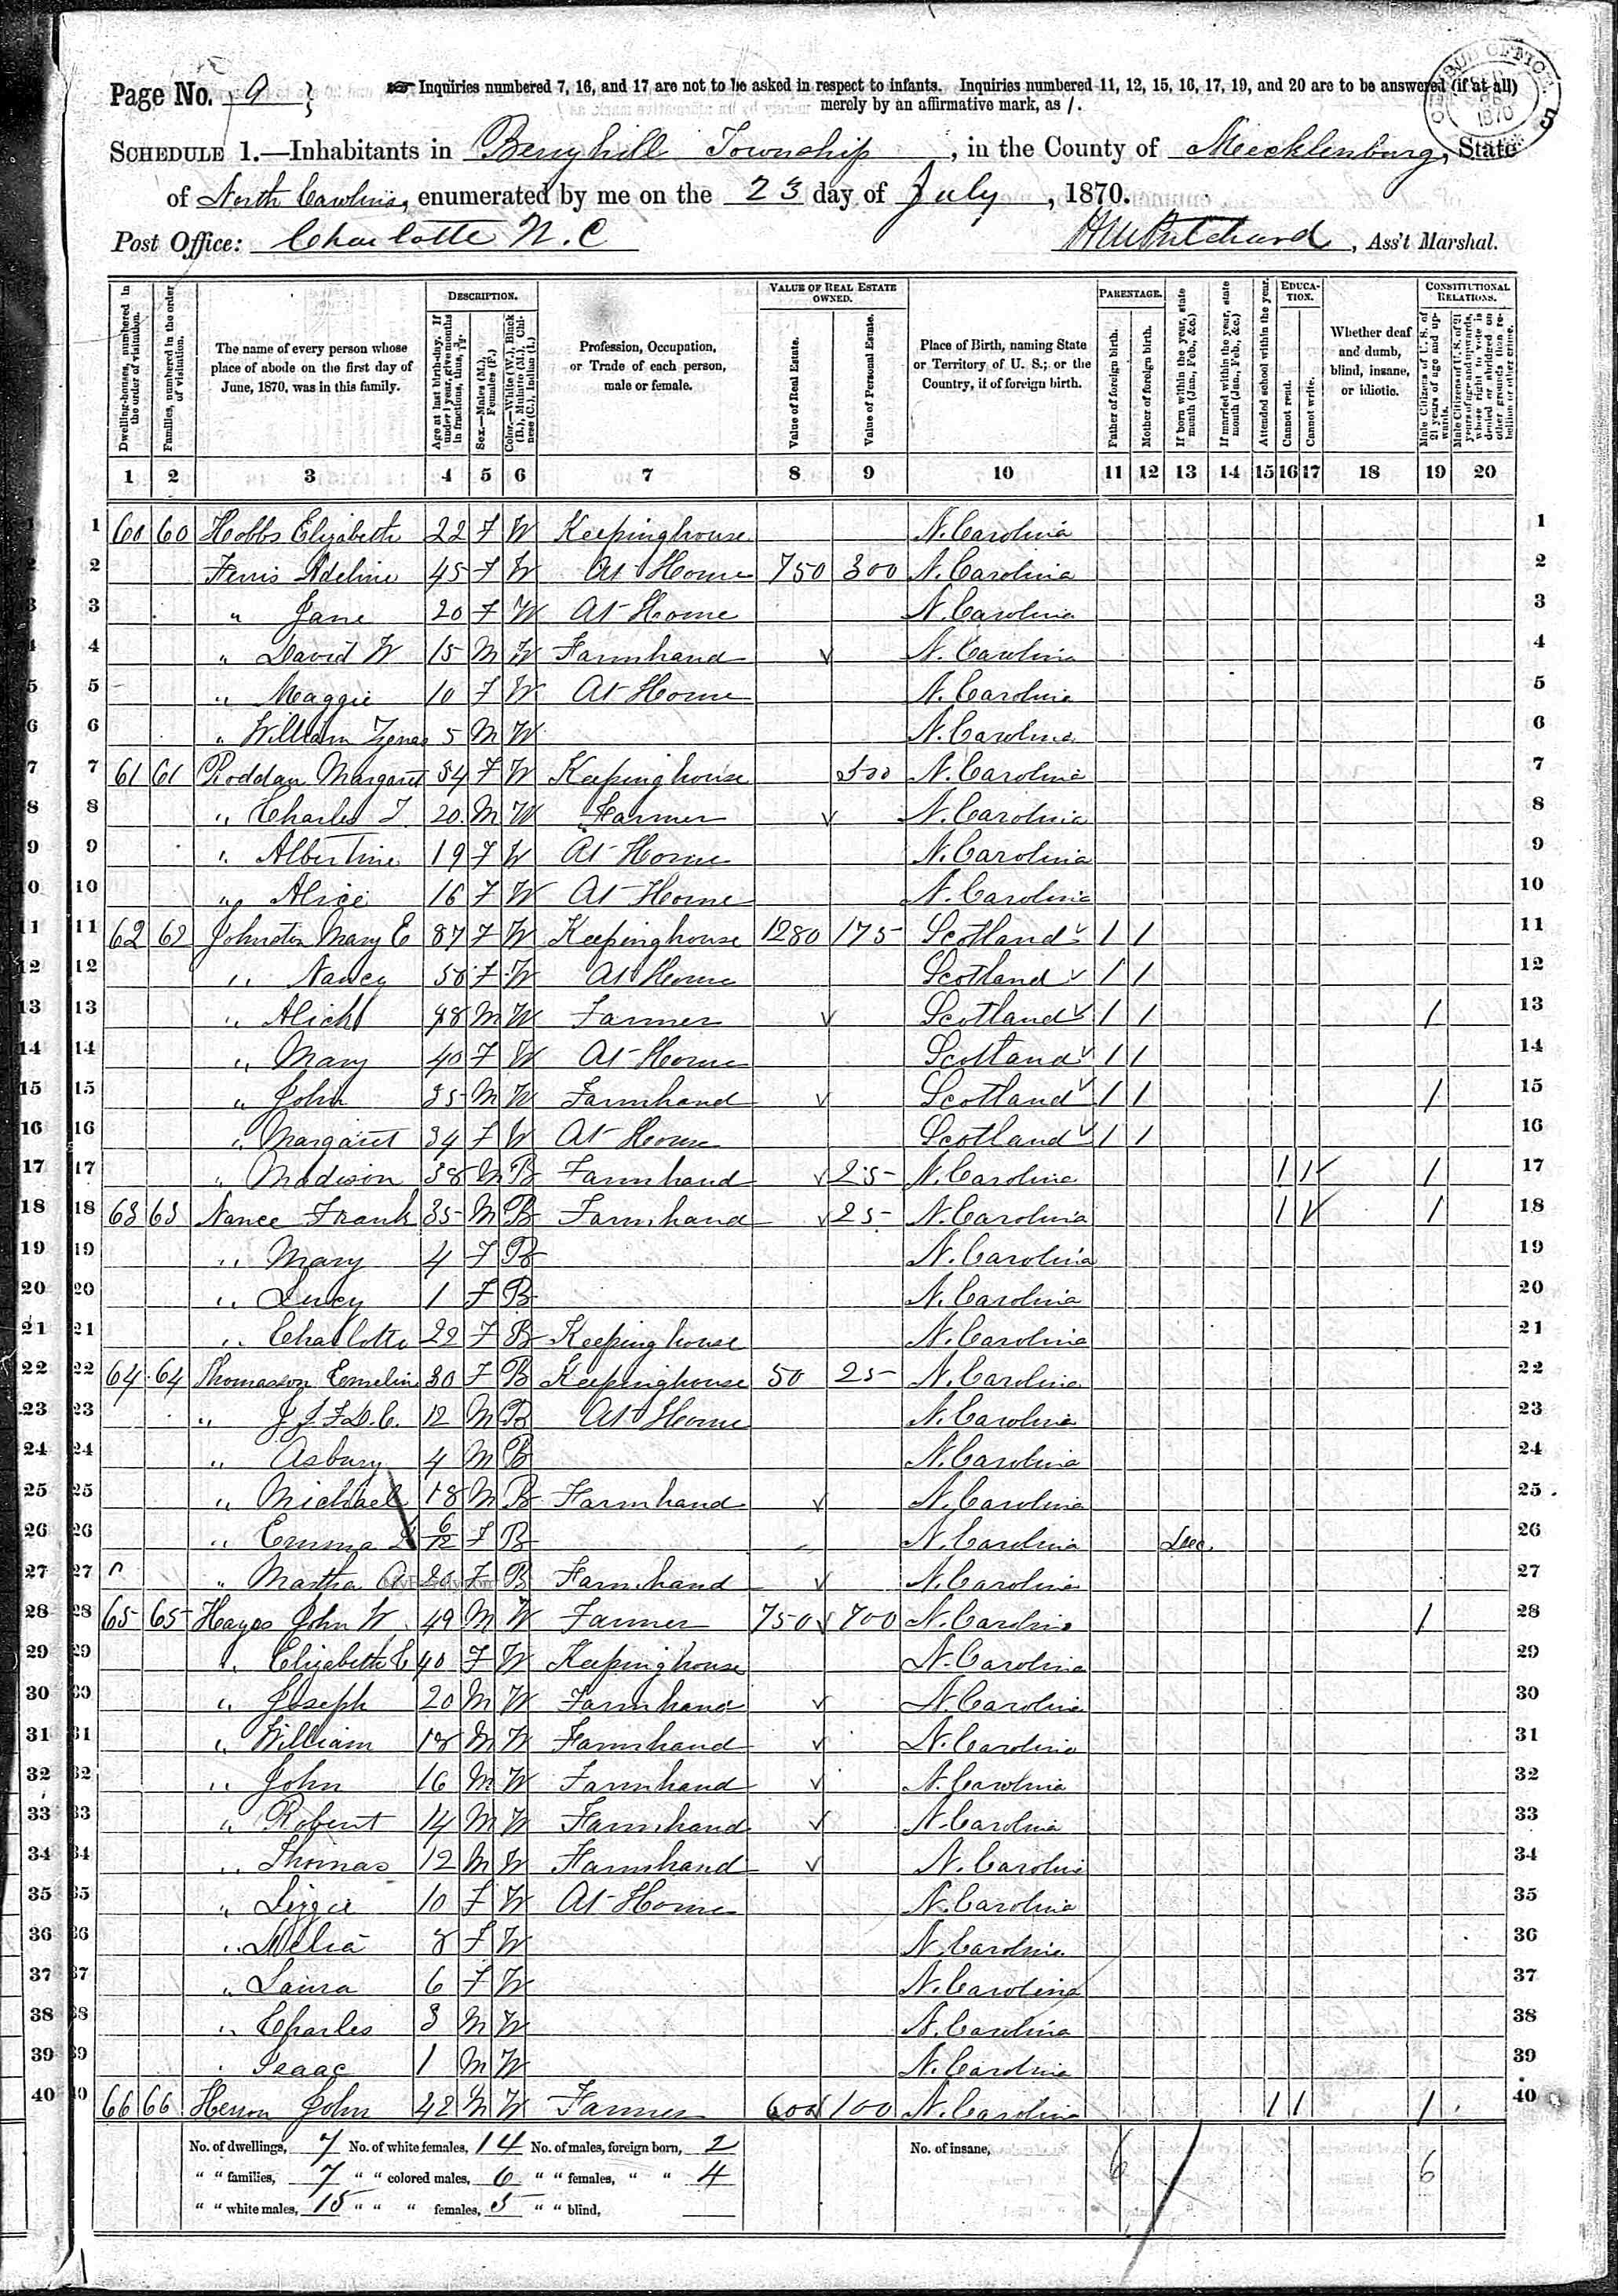 Page No. 9
☞ Inquiries numbered 7, 16, and 17 are not to be asked in respect to infants. Inquiries numbered 11, 12, 15, 16, 17, 19, and 20 are to be answered (if at all)
merely by an affirmative mark, as /.
1870
5
SCHEDULE 1.—Inhabitants in Berryhill Township, in the County of Mecklenburg, State
of North Carolina, enumerated by me on the 23 day of July, 1870.
Post Office: Charlotte N. C
, Ass't Marshal.
DESCRIPTION. VALUE OF REAL ESTATE OWNED. PARENTAGE. EDUCATION. CONSTITUTIONAL RELATIONS.
Dwelling-houses, numbered in the order of visitation.
Families, numbered in the order of visitation.
The name of every person whose place of abode on the first day of June, 1870, was in this family.
Age at last birth-day. If under 1 year, give months in fractions, thus, 3/12.
Sex.—Males (M.), Females (F.)
Color.—White (W.), Black (B.), Mulatto (M.), Chinese (C.), Indian (I.)
Profession, Occupation, or Trade of each person, male or female.
Value of Real Estate.
Value of Personal Estate.
Place of Birth, naming State or Territory of U. S.; or the Country, if of foreign birth.
Father of foreign birth.
Mother of foreign birth.
If born within the year, state month (Jan., Feb., &c.)
If married within the year, state month (Jan., Feb., &c.)
Attended school within the year.
Cannot read.
Cannot write.
Whether deaf and dumb, blind, insane, or idiotic.
Male Citizens of U. S. of 21 years of age and upwards.
Male Citizens of U. S. of 21 years of age and upwards, whose right to vote is denied or abridged on other grounds than rebellion or other crime.
1 2 3 4 5 6 7 8 9 10 11 12 13 14 15 16 17 18 19 20
1 60 60 Hobbs Elizabeth 22 F W Keepinghouse N. Carolina 1
2 Adeline 45 F W At Home 750 300 N. Carolina 2
3 " Jane 20 F W At Home N. Carolina 3
4 " David W 15 M W Farmhand N. Carolina 4
5 " Maggie 10 F W At Home N. Carolina 5
6 " William 5 M W N. Carolina 6
7 61 61 Roddan Margaret 54 F W Keepinghouse N. Carolina 7
8 " Charles 20 M W Farmer N. Carolina 8
9 " Albertine 19 F W At Home N. Carolina 9
10 " Alice 16 F W At Home N. Carolina 10
11 62 62 Johnston Mary E 87 F W Keepinghouse 1280 175 Scotland / / 11
12 " Nancy F W At Home Scotland / / 12
13 " M W Farmer Scotland / / / 13
14 " Mary 40 F W At Home Scotland / / 14
15 " John 35 M W Farmhand Scotland / / / 15
16 " Margaret 34 F W At Home Scotland / / 16
17 " Madison 38 M B Farmhand 25 N. Carolina / / / 17
18 63 63 Nance Frank 35 M B Farmhand 25 N. Carolina / / / 18
19 " Mary 4 F B N. Carolina 19
20 " Lucy 1 F B N. Carolina 20
21 " Charlotte 22 F B Keeping house N. Carolina 21
22 64 64 Thomason Emeline 30 F B Keepinghouse 50 25 N. Carolina 22
23 " 12 M B At Home N. Carolina 23
24 " Asbury 4 M B N. Carolina 24
25 " Michael 18 M B Farmhand N. Carolina 25
26 " Emma 6/12 F B N. Carolina Dec. 26
27 " Martha A 20 F B Farmhand N. Carolina 27
28 65 65 Hayes John W 49 M W Farmer 750 700 N. Carolina / 28
29 " Elizabeth C 40 F W Keeping house N. Carolina 29
30 " Joseph 20 M W Farmhand N. Carolina 30
31 " William 18 M W Farmhand N. Carolina 31
32 " John 16 M W Farmhand N. Carolina 32
33 " Robert 14 M W Farmhand N. Carolina 33
34 " Thomas 12 M W Farmhand N. Carolina 34
35 " Lizzie 10 F W At Home N. Carolina 35
36 " 8 F W N. Carolina 36
37 " Laura 6 F W N. Carolina 37
38 " Charles 3 M W N. Carolina 38
39 " Isaac 1 M W N. Carolina 39
40 66 66 Herron John 42 M W Farmer 600 100 N. Carolina / / / 40
No. of dwellings, 7 No. of white females, 14 No. of males, foreign born, 2 No. of insane, 6 6
" " families, 7 " " colored males, 6 " " females, " " 4
" " white males, 15 " " " females, 5 " " blind,